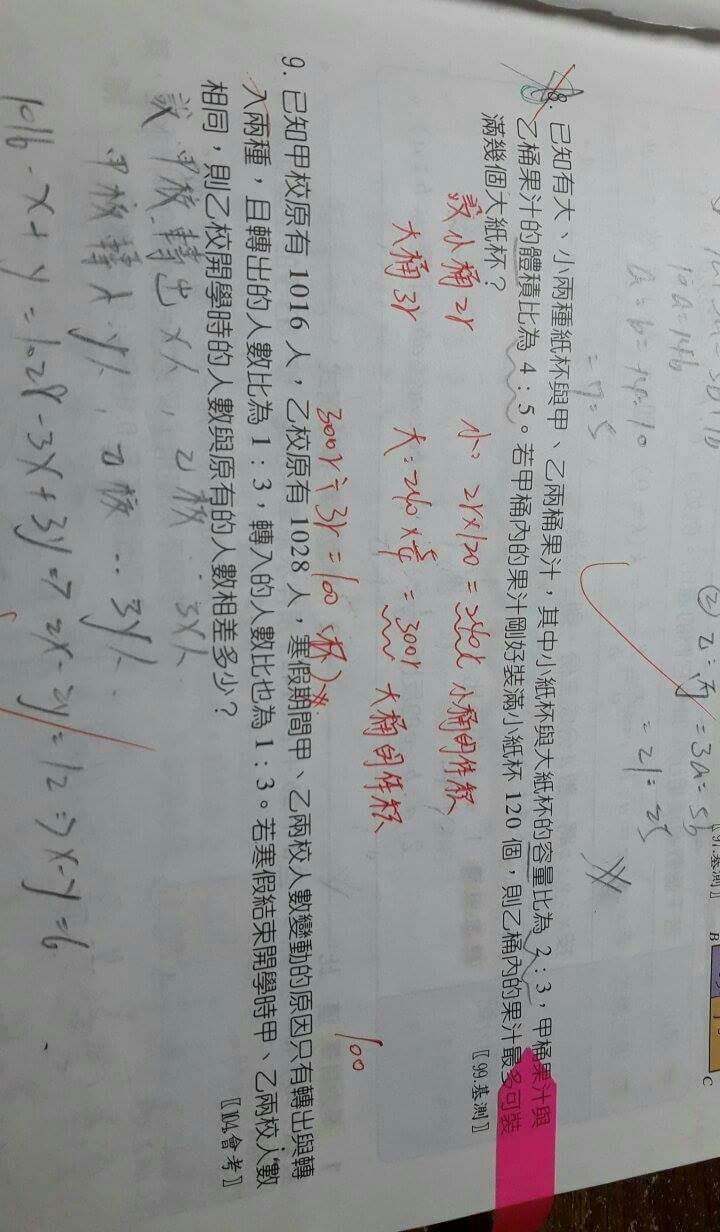 (2) Z:
= 3a = 5b
= 21 = 25
〚97.基測〛
B
C
10a = 14b
= 7 = 5
8. 已知有大、小兩種紙杯與甲、乙兩桶果汁，其中小紙杯與大紙杯的容量比為 2：3，甲桶果汁與
乙桶果汁的體積比為 4：5。若甲桶內的果汁剛好裝滿小紙杯 120 個，則乙桶內的果汁最多可裝
滿幾個大紙杯？
〚99.基測〛
設小桶 2r 小：2r×120 = 240r 小桶的体积
大桶 3r 大=240×5/4 = 300r 大桶的体积
300r÷3r=100（杯）
100
9. 已知甲校原有 1016 人，乙校原有 1028 人，寒假期間甲、乙兩校人數變動的原因只有轉出與轉
入兩種，且轉出的人數比為 1：3，轉入的人數比也為 1：3。若寒假結束開學時甲、乙兩校人數
相同，則乙校開學時的人數與原有的人數相差多少？
〚104.會考〛
設 甲校轉出 x人，乙校：3x人
甲校轉入 y人，乙校：3y人
1016 - x + y = 1028 - 3x + 3y ⇒ 2x - 2y = 12 ⇒ x - y = 6